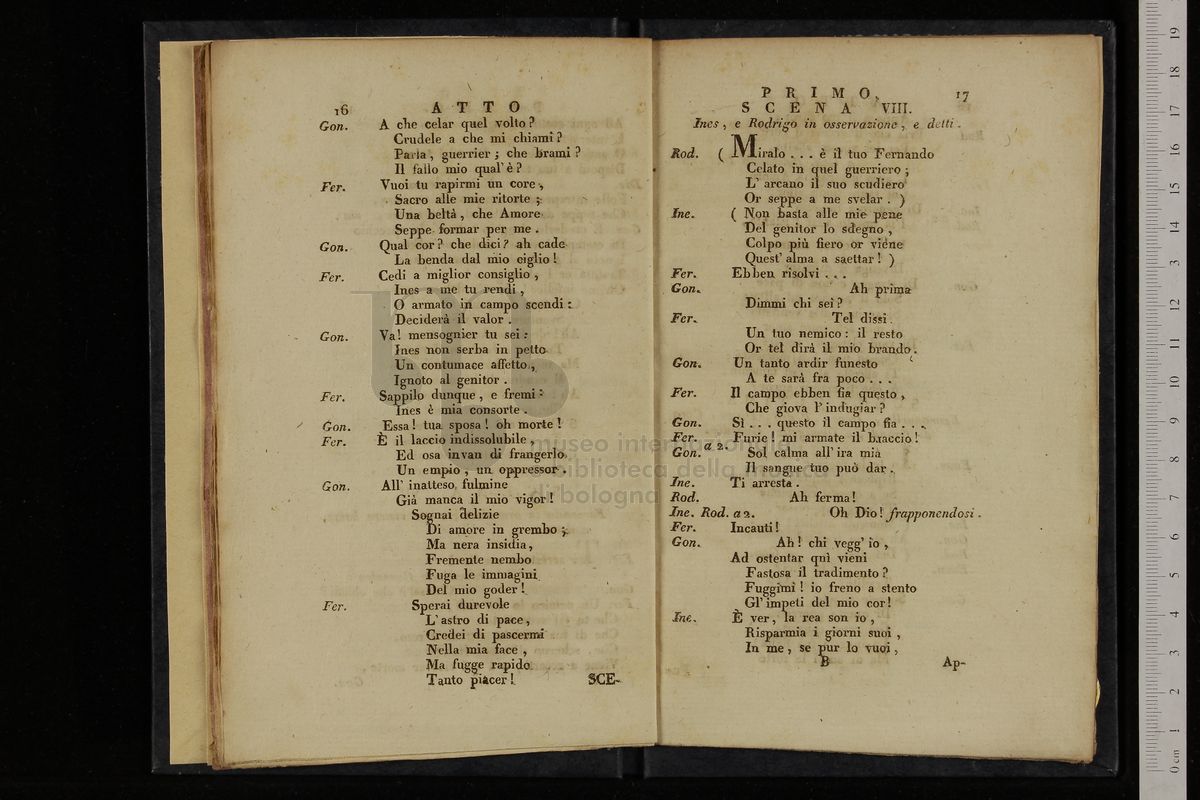 16 ATTO
Gon. A che celar quel volto?
Crudele a che mi chiami?
Parla, guerrier; che brami?
Il fallo mio qual' è?
Fer. Vuoi tu rapirmi un core,
Sacro alle mie ritorte;
Una beltà, che Amore
Seppe formar per me.
Gon. Qual cor? che dici? ah cade
La benda dal mio ciglio!
Fer. Cedi a miglior consiglio,
Ines a me tu rendi,
O armato in campo scendi:
Deciderà il valor.
Gon. Va! mensognier tu sei:
Ines non serba in petto
Un contumace affetto,
Ignoto al genitor.
Fer. Sappilo dunque, e fremi:
Ines è mia consorte.
Gon. Essa! tua sposa! oh morte!
Fer. È il laccio indissolubile,
Ed osa invan di frangerlo
Un empio, un oppressor.
Gon. All' inatteso fulmine
Già manca il mio vigor!
Sognai delizie
Di amore in grembo;
Ma nera insidia,
Fremente nembo
Fuga le immagini
Del mio goder!
Fer. Sperai durevole
L' astro di pace,
Credei di pascermi
Nella mia face,
Ma fugge rapido
Tanto piacer!
SCE-
PRIMO. 17
SCENA VIII.
Ines, e Rodrigo in osservazione, e detti.
Rod. ( Miralo . . . è il tuo Fernando
Celato in quel guerriero;
L' arcano il suo scudiero
Or seppe a me svelar. )
Ine. ( Non basta alle mie pene
Del genitor lo sdegno,
Colpo più fiero or viene
Quest' alma a saettar! )
Fer. Ebben risolvi . . .
Gon. Ah prima
Dimmi chi sei?
Fer. Tel dissi.
Un tuo nemico: il resto
Or tel dirà il mio brando.
Gon. Un tanto ardir funesto
A te sarà fra poco . . .
Fer. Il campo ebben fia questo,
Che giova l' indugiar?
Gon. Sì . . . questo il campo fia . . .
Fer. Gon. a 2. Furie! mi armate il braccio!
Sol calma all' ira mia
Il sangue tuo può dar.
Ine. Ti arresta.
Rod. Ah ferma!
Ine. Rod. a 2. Oh Dio! frapponendosi.
Fer. Incauti!
Gon. Ah! chi vegg' io,
Ad ostentar qnì vieni
Fastosa il tradimento?
Fuggimi! io freno a stento
Gl' impeti del mio cor!
Ine. È ver, la rea son io,
Risparmia i giorni suoi,
In me, se pur lo vuoi,
B Ap-
museo internazionale
e biblioteca della musica
di bologna